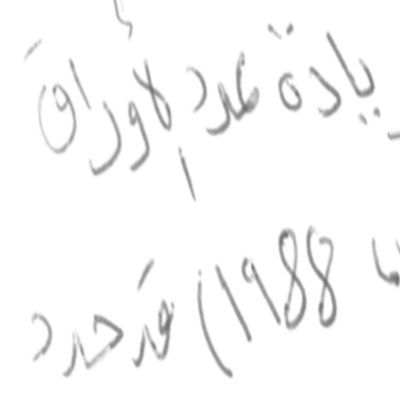 يادة عدد الأوراق
1988) قد حدد